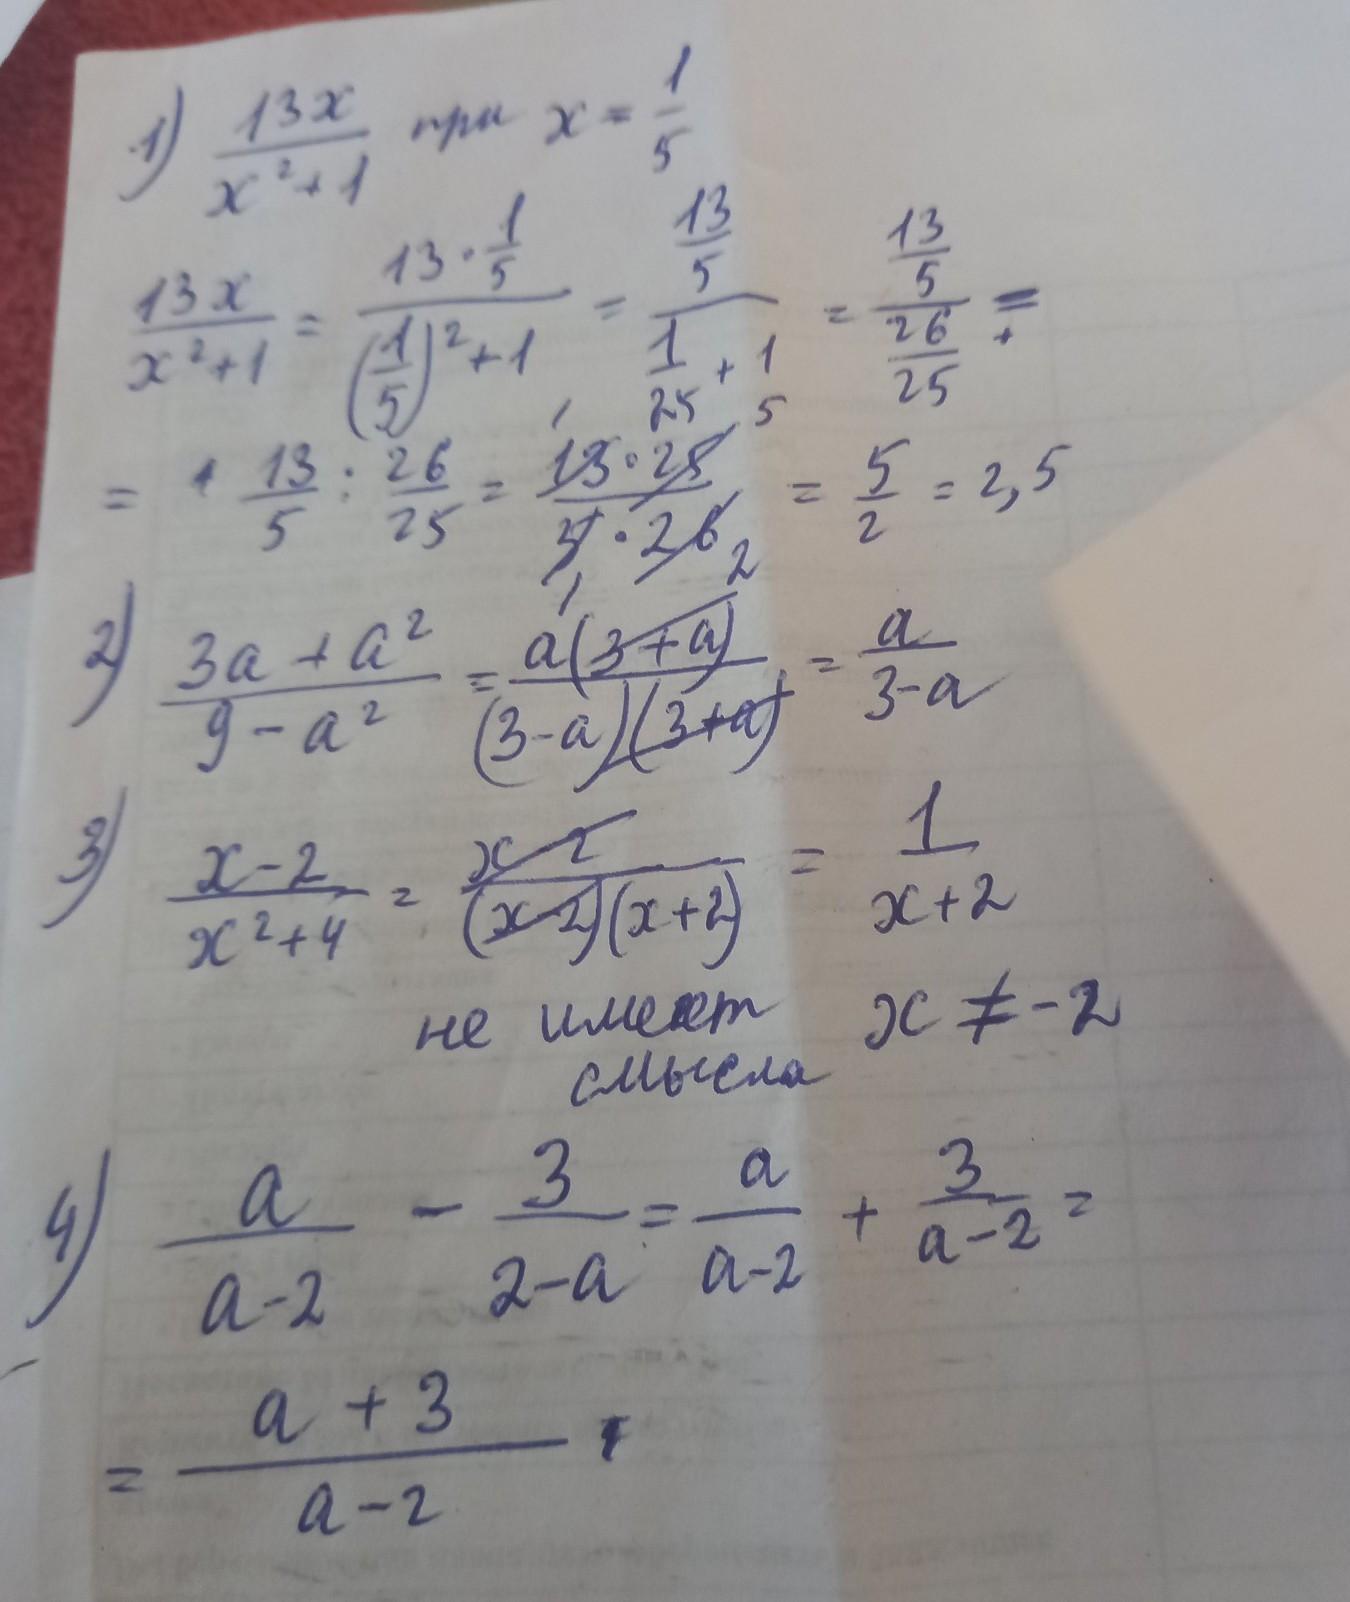 1) 13x/(x²+1) при x = 1/5
13x/(x²+1) = (13·1/5)/((1/5)²+1) = (13/5)/(1/25+1) = (13/5)/(26/25) =
= 13/5 : 26/25 = (13·25)/(5·26) = 5/2 = 2,5
2) (3a+a²)/(9-a²) = a(3+a)/((3-a)(3+a)) = a/(3-a)
3) (x-2)/(x²+4) = (x-2)/((x-2)(x+2)) = 1/(x+2)
не имеет x ≠ -2
смысла
4) a/(a-2) - 3/(2-a) = a/(a-2) + 3/(a-2) =
= (a+3)/(a-2)